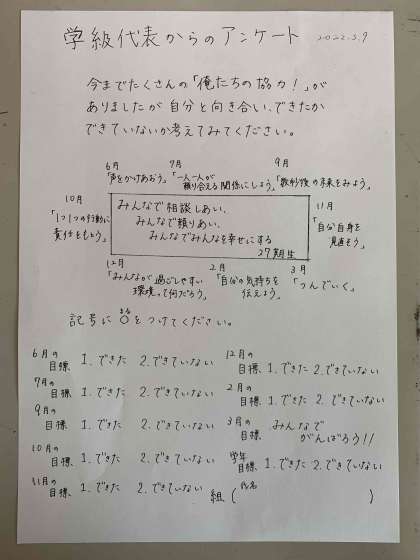 学級代表からのアンケート 2022.3.9
今までたくさんの「俺たちの協力!」が
ありましたが自分と向き合い、できたか
できていないか考えてみてください。
6月
「声をかけあおう」
7月
「一人一人が
頼り合える関係にしよう」
9月
「数秒後の未来をみよう」
10月
「1つ1つの行動に
責任をもとう」
みんなで相談しあい、
みんなで頼りあい、
みんなでみんなを幸せにする
27期生
11月
「自分自身を
見直そう」
12月
「みんなが過ごしやすい
環境って何だろう」
2月
「自分の気持ちを
伝えよう」
3月
「つんでいく」
記号に○をつけてください。
まる
6月の目標 1.できた 2.できていない
7月の目標 1.できた 2.できていない
9月の目標 1.できた 2.できていない
10月の目標 1.できた 2.できていない
11月の目標 1.できた 2.できていない
12月の目標 1.できた 2.できていない
2月の目標 1.できた 2.できていない
3月の目標 みんなで
がんばろう!!
学年目標 1.できた 2.できていない
組 (氏名 )